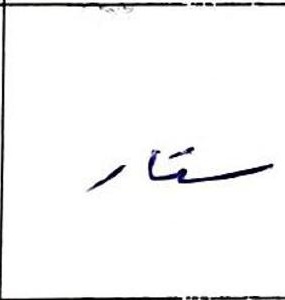 ستار